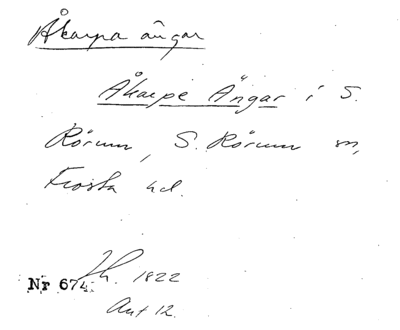 Åkarpa ängar
Åkarpe Ängar i S.
Rörum, S. Rörum sn,
Frosta hd.
Nr 674. Lh. 1822
Akt 12.